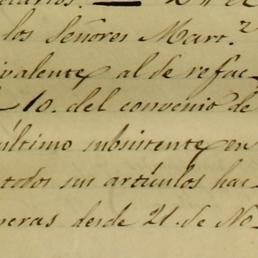 los Señores Mart.z
ivalente al de refac
10. del convenio de
último subsistente en
todos sus artículos hac
neras desde 21. de No-